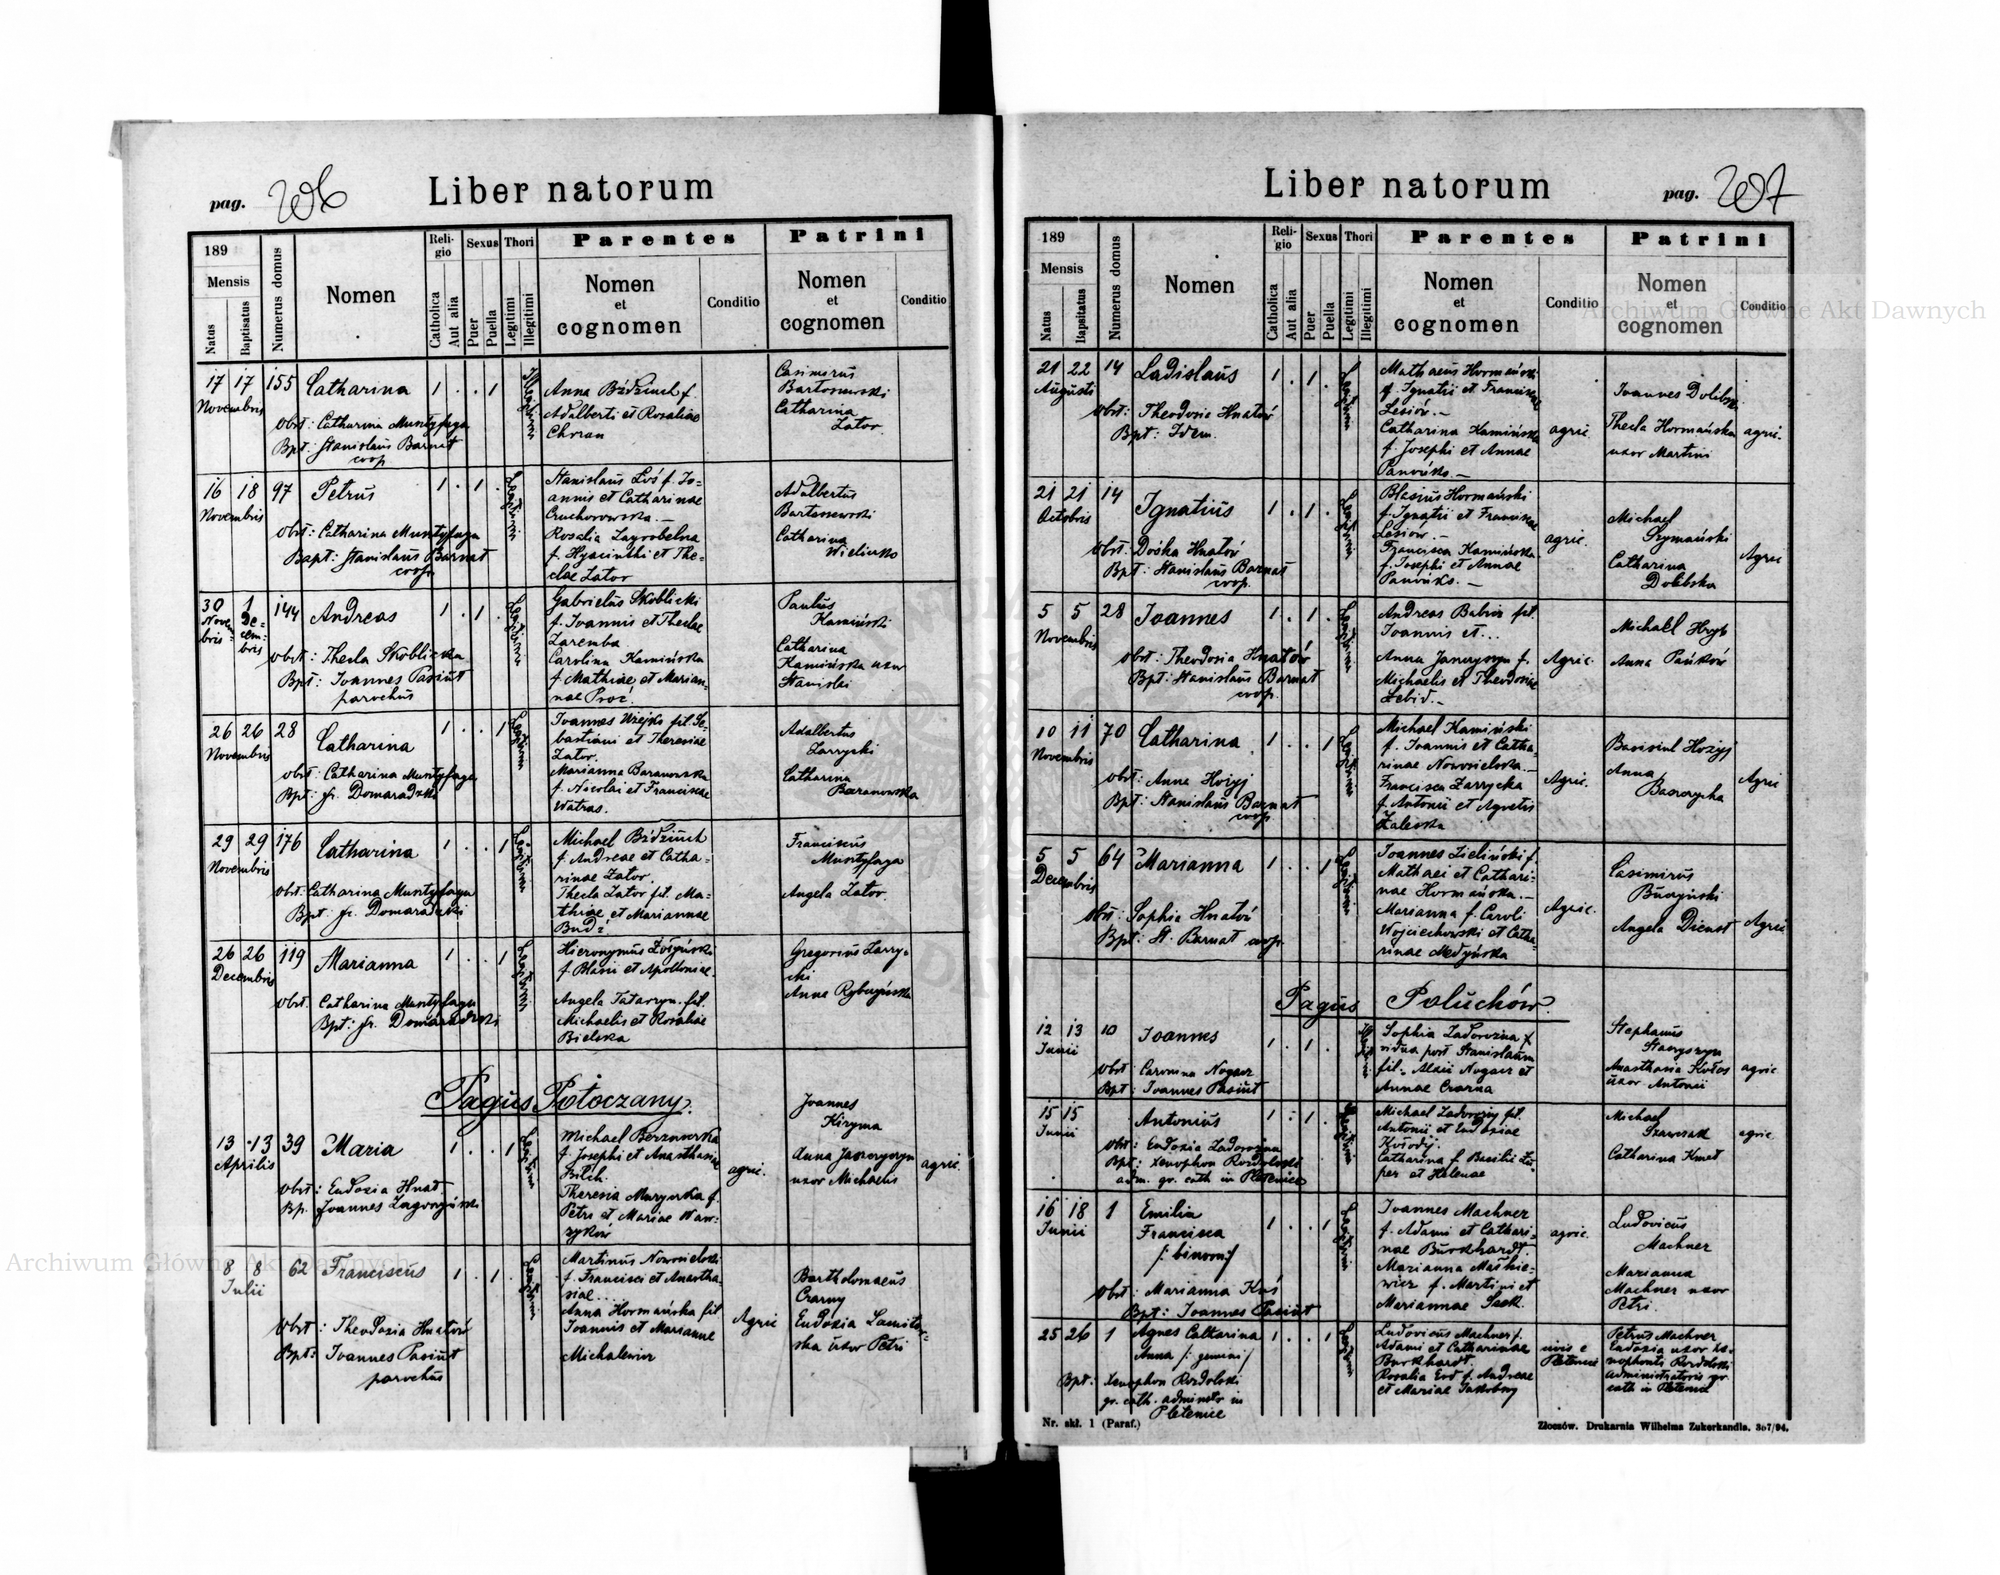 pag. 206
Liber natorum
189
Mensis
Natus
Baptisatus
Numerus domus
Nomen
Religio
Catholica
Aut alia
Sexus
Puer
Puella
Thori
Legitimi
Illegitimi
Parentes
Nomen
et
cognomen
Conditio
Patrini
Nomen
et
cognomen
Conditio
17 17 155 Catharina 1 . . 1
Novembris
Anna Bidziuch f.
Adalberti et Rosaliae
Casimirus
Catharina
Zator
obst: Catharina Muntyfaga
Bpt: Stanislaus Barnat
coop.
16 18 97 Petrus 1 . 1 .
Novembris
Stanislaus Łoś f. Jo=
annis et Catharinae
Rosalia Zagrobelna
f. Hyacinthi et The=
clae Zator
Adalbertus
Catharina
obst: Catharina Muntyfaga
Bapt: Stanislaus Barnat
coop.
30 1 144 Andreas 1 . 1 .
Novembris
Decembris
Gabrielus Skoblicki
f. Joannis et Theclae
Zaremba
Carolina Kamińska
f. Mathiae et Marian=
nae Proć.
Paulus
Kamiński
Catharina
Kamińska uxor
Stanislai
obst: Thecla Skoblicka
Bpt: Joannes Pasiut
parochus
26 26 28 Catharina 1 . . 1
Novembris
Joannes Uzejko fil. Se=
bastiani et Theresiae
Zator.
Marianna Baranowska
f. Nicolai et Franciscae
Watras.
Adalbertus
Zarzycki
Catharina
Baranowska
obst: Catharina Muntyfaga
Bpt: fr. Domaradzki
29 29 176 Catharina 1 . . 1
Novembris
Michael Bidziuch
f. Andreae et Catha=
rinae Zator.
Thecla Zator fil. Ma=
thiae et Mariannae
Franciscus
Muntyfaga
Angela Zator.
obst: Catharina Muntyfaga
Bpt: fr. Domaradzki
26 26 119 Marianna 1 . . 1
Decembris
f. Blasii et Apolloniae.
Angela Tataryn. fil.
Michaelis et Rosaliae
Bielska
Gregorius Zarzy=
cki
obst. Catharina Muntyfaga
Bpt: fr. Domaradzki
Pagus Potoczany.
13 13 39 Maria 1 . . 1
Aprilis
f. Josephi et Anasthasiae
Bilch.
Theresia Muzyczka f.
Petri et Mariae Waw=
rzyków
agric.
Joannes
Kizyma
uxor Michaelis
agric.
obst: Eudoxia Hnat.
Bp. Joannes Zagorzyński
8 8 62 Franciscus 1 . 1 .
Julii
Martinus Nowosielski
f. Francisci et Anastha=
siae...
Anna Hormańska fil.
Joannis et Marianne
Michalewicz
Agric
Bartholomaeus
Czarny
ska uxor Petri
obst: Theodosia Hnatów
Bpt: Joannes Pasiut
parochus
Liber natorum
pag. 207
189
Mensis
Natus
Bapsitatus
Numerus domus
Nomen
Religio
Catholica
Aut alia
Sexus
Puer
Puella
Thori
Legitimi
Illegitimi
Parentes
Nomen
et
cognomen
Conditio
Patrini
Nomen
et
cognomen
Conditio
21 22 14 Ladislaus 1 . 1 .
Augusti
Mathaeus Hormański
f. Ignatii et Franciscae
Lesiów.-
Catharina Kamińska
f. Josephi et Annae
Panońko.-
agric.
Thecla Hormańska
uxor Martini
agric.
obst: Theodosia Hnatów
Bpt: Idem.
21 21 14 Ignatius 1 . 1 .
Octobris
Blasius Hormański
f. Ignatii et Franciscae
Lesiów.-
Francisca Kamińska
f. Josephi et Annae
Panońko.-
agric.
Michael
Szymański
Catharina
Dolibska
Agric
obst: Dośka Hnatów
Bpt: Stanislaus Barnat
coop.
5 5 28 Joannes 1 . 1 .
Novembris
Andreas Babir fil.
Joannis et...
Anna Janczyszyn f.
Michaelis et Theodosiae
Lebid.-
Agric.
Michael Hryb
Anna Pańków
obst: Theodosia Hnatów
Bpt: Stanislaus Barnat
coop.
10 11 70 Catharina 1 . . 1
Novembris
Michael Kamiński
f. Joannis et Catha=
rinae Nowosielska.-
Francisca Zarzycka
f. Antonii et Agnetis
Zaleska
Agric.
Anna
Agric
obst: Anna Hoźyj
Bpt: Stanislaus Barnat
coop.
5 5 64 Marianna 1 . . 1
Decembris
Joannes Zieliński f.
Mathaei et Cathari=
nae Hormańska.-
Marianna f. Caroli
Wojciechowski et Catha=
rinae Medyńska
Agric.
Casimirus
Buczyński
Angela Dienst
Agric
obst: Sophia Hnatów
Bpt: St. Barnat coop.
Pagus Poluchów.
12 13 10 Joannes 1 . 1 .
Junii
Sophia Zadorozna f.
vidua post Stanislaum
fil. Alexii Nogacz et
Annae Czarna
Stephanus
uxor Antonii
agric
Bpt: Joannes Pasiut
15 15 Antonius 1 . 1 .
Junii
Michael Zadorozny fil.
Antonii et Eudoxiae
Catharina f. Basilii Łu=
per et Helenae
Michael
Szewczuk
Catharina Kmet
agric
obst: Eudoxia Zadorozna
Bpt: Xenophon Rozdolski
adm. gr. cath. in Pletenice
16 18 1 Emilia 1 . . 1
Junii
Francisca
/: binom:/
Joannes Machner
f. Adami et Cathari=
nae Burkhardt.
Marianna Maśkie=
wicz f. Martini et
Mariannae Sack.
agric.
Ludovicus
Machner
Marianna
Machner uxor
Petri.
obst: Marianna Kuś
Bpt: Joannes Pasiut
25 26 1 Agnes Catharina 1 . . 1
Anna /: gemini/
Ludovicus Machner f.
Adami et Catharinae
Burkhardt.
et Mariae Jakobny
Petrus Machner
Eudoxia uxor Xe=
nophontis Rozdolski
administratoris gr.
cath in Pletenice
Bpt: Xenophon Rozdolski
gr. cath. administr in
Pletenice
Nr. skł. 1 (Paraf.)
Złoczów. Drukarnia Wilhelma Zukerkandla. 307/94.
Archiwum Główne Akt Dawnych
Archiwum Główne Akt Dawnych